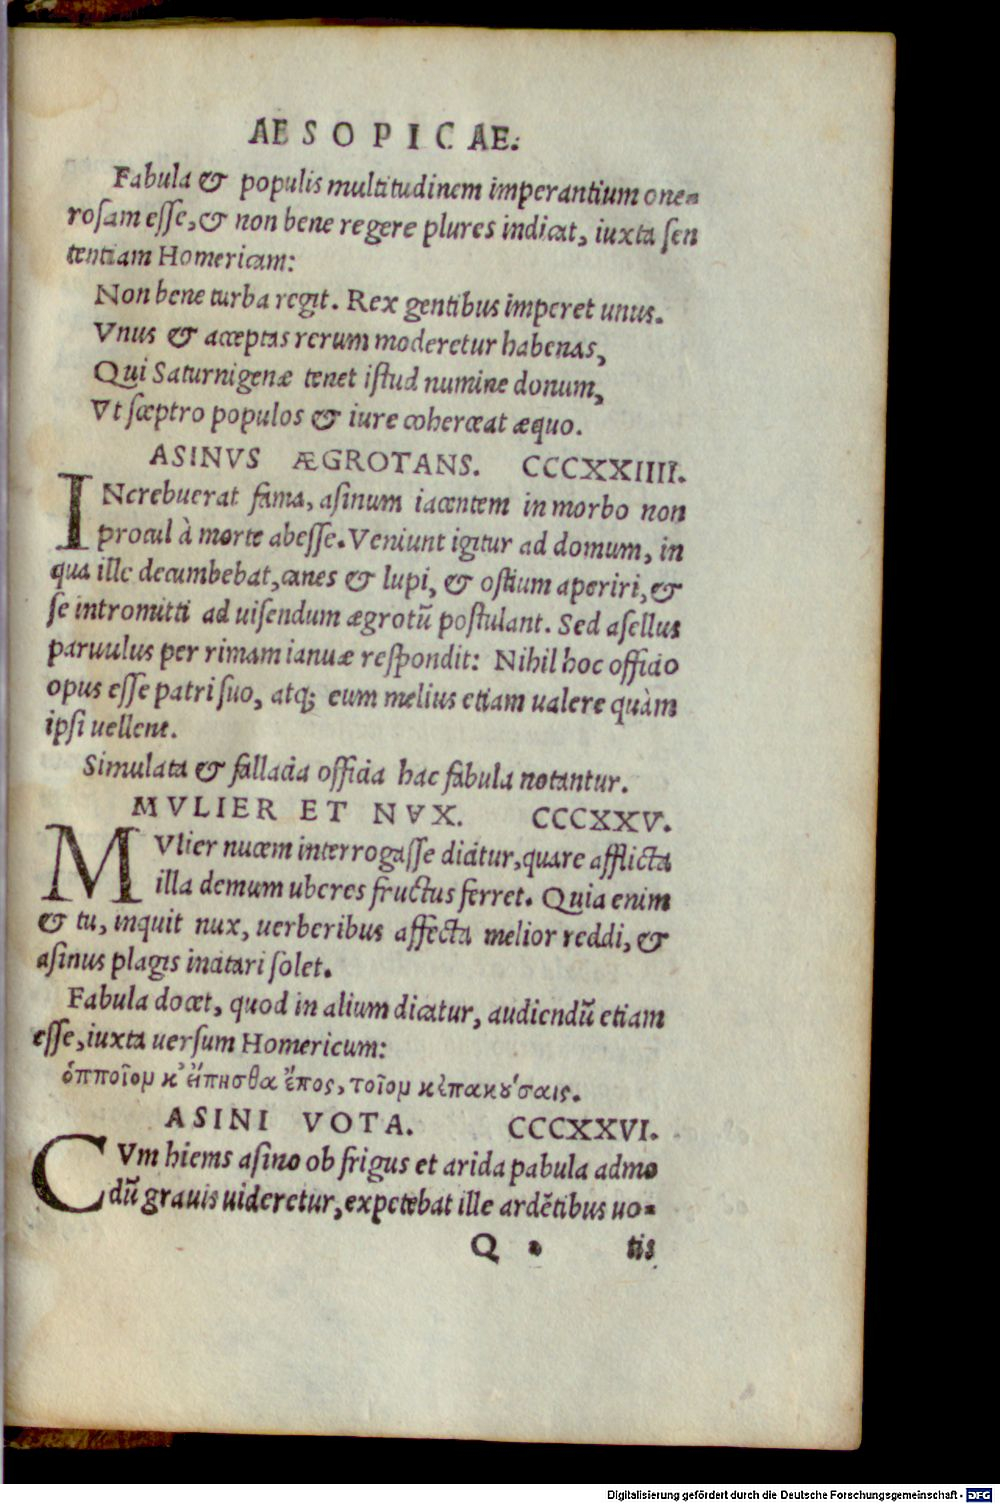 AESOPICAE.
Fabula & populis multitudinem imperantium one-
rosam esse, & non bene regere plures indicat, iuxta sen
tentiam Homericam:
Non bene turba regit. Rex gentibus imperet unus.
Vnus & acceptas rerum moderetur habenas,
Qui Saturnigenæ tenet istud numine donum,
Vt sceptro populos & iure coherceat æquo.
ASINVS ÆGROTANS. CCCXXIIII.
INcrebuerat fama, asinum iacentem in morbo non
procul à morte abesse. Veniunt igitur ad domum, in
qua ille decumbebat, canes & lupi, & ostium aperiri, &
se intromitti ad uisendum ægrotũ postulant. Sed asellus
paruulus per rimam ianuæ respondit: Nihil hoc officio
opus esse patri suo, atq; eum melius etiam ualere quàm
ipsi uellent.
Simulata & fallacia officia hac fabula notantur.
MVLIER ET NVX. CCCXXV.
MVlier nucem interrogasse dicitur, quare afflicta
illa demum uberes fructus ferret. Quia enim
& tu, inquit nux, uerberibus affecta melior reddi, &
asinus plagis incitari solet.
Fabula docet, quod in alium dicatur, audiendũ etiam
esse, iuxta uersum Homericum:
ὁπποῖομ κ' εἴπησθα ἔπος, τοῖομ κ' ἐπακούσαις.
ASINI VOTA. CCCXXVI.
CVm hiems asino ob frigus et arida pabula admo
dũ grauis uideretur, expetebat ille ardẽtibus uo-
Q tis
Digitalisierung gefördert durch die Deutsche Forschungsgemeinschaft - DFG